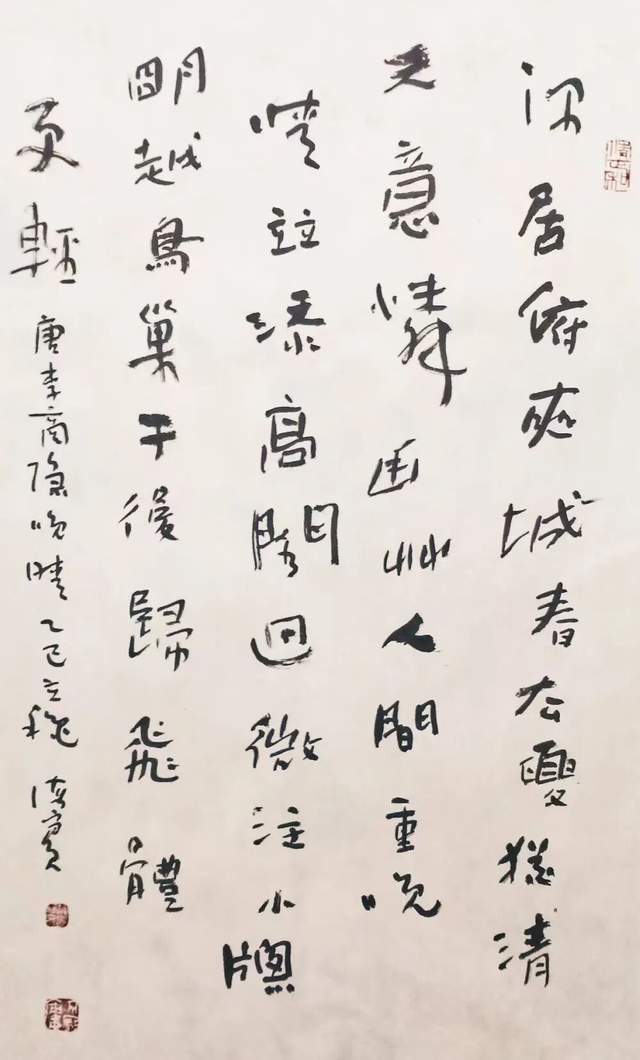 深居俯夾城春去夏猶清
天意憐幽草人間重晚
晴竝添高閣迥微注小牕
朙越鳥巢干後歸飛體
更輕 唐李商隱晚晴乙巳立秋